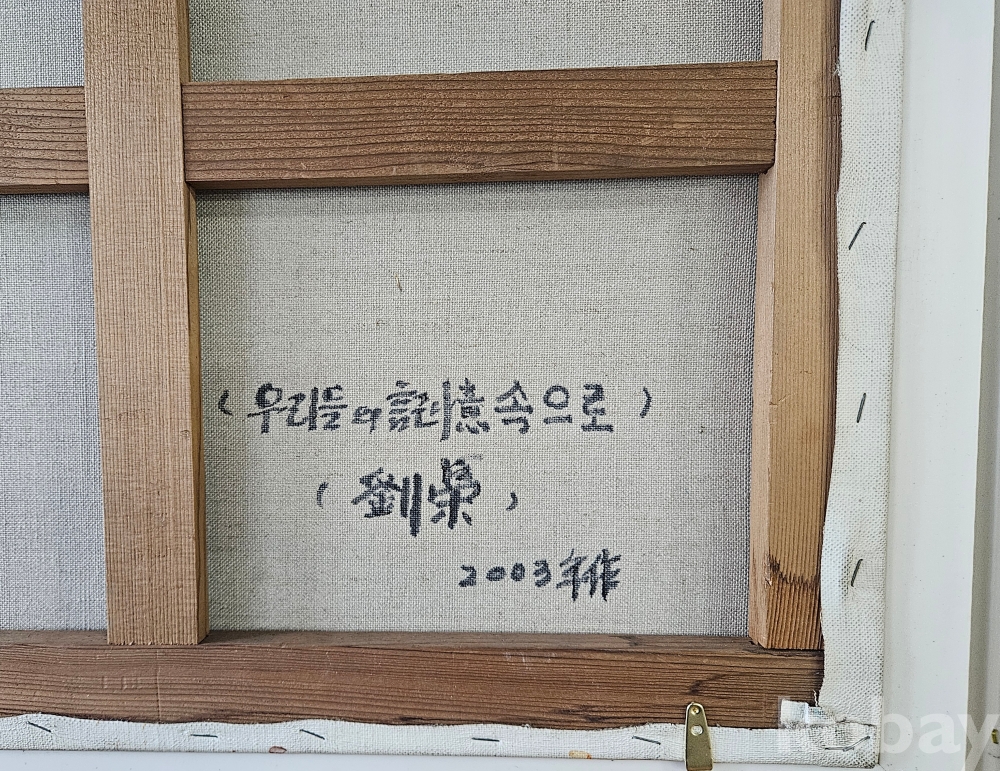 (우리들의 記憶속으로)
(劉
2003年作
kobay